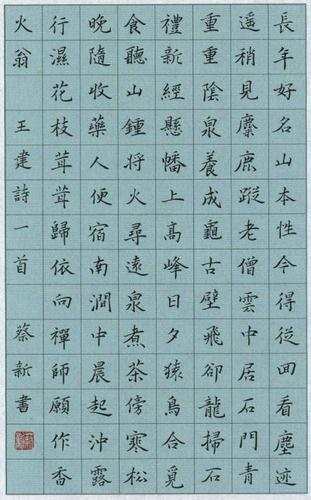 長年好名山本性今得從回看塵迹
遙稍見麋鹿蹤老僧雲中居石門青
重重陰泉養成龜古壁飛卻龍掃石
禮新經懸幡上高峰日夕猿鳥合覓
食聽山鍾將火尋遠泉煮茶傍寒松
晚隨收藥人便宿南澗中晨起沖露
行濕花枝茸茸歸依向禪師願作香
火翁 王建詩一首 蔡新書